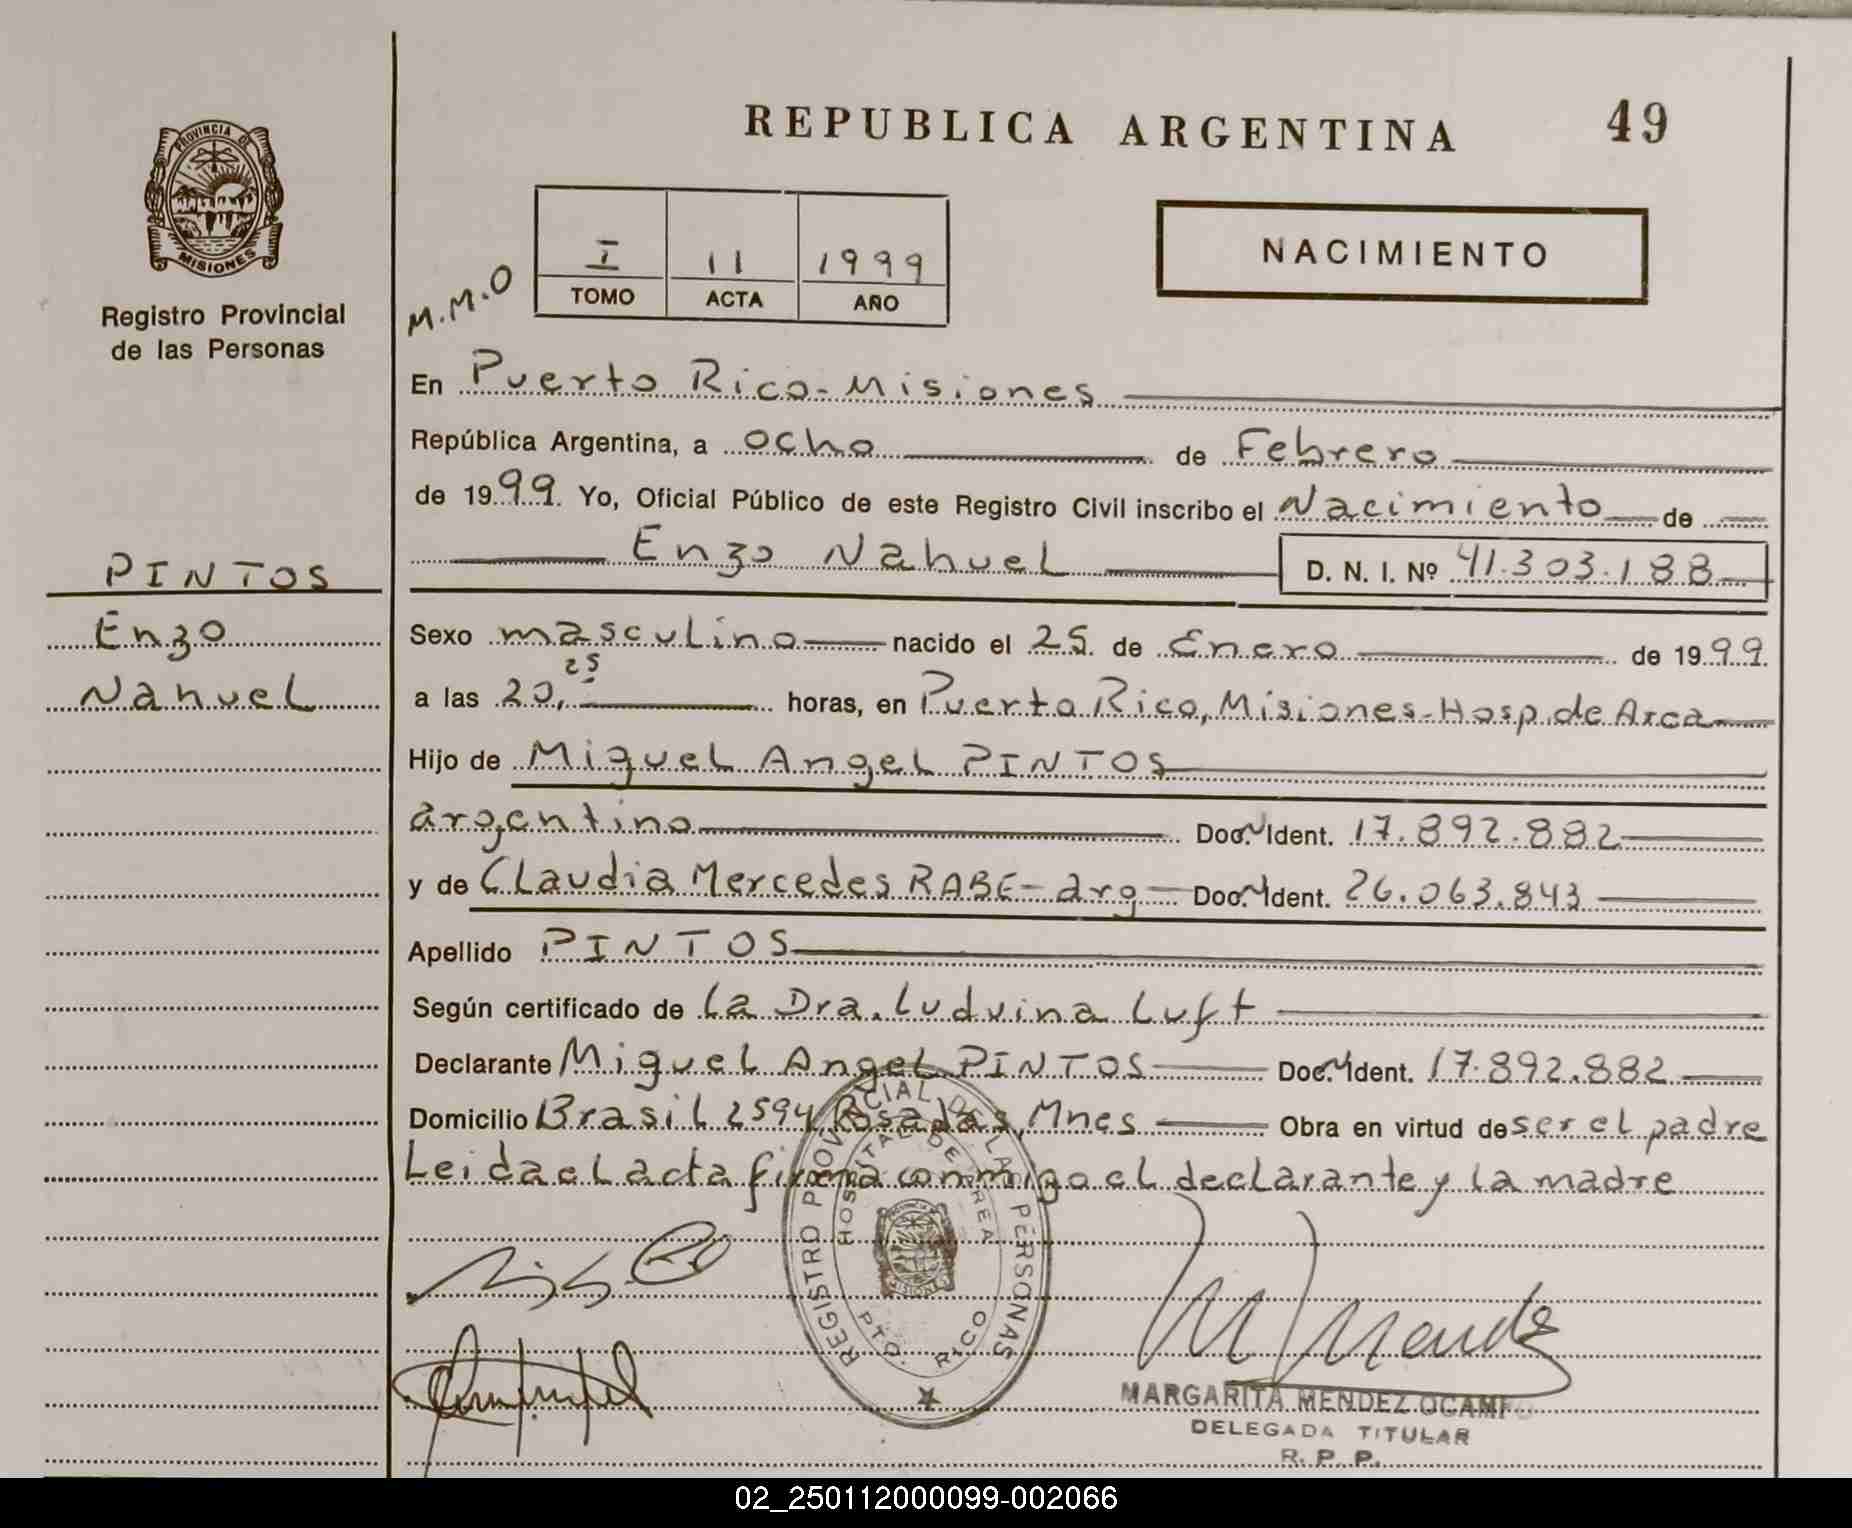 REPUBLICA ARGENTINA
49
PROVINCIA DE
MISIONES
Registro Provincial
de las Personas
I 11 1999
TOMO ACTA AÑO
NACIMIENTO
M.M.O
En Puerto Rico-Misiones
República Argentina, a ocho de Febrero
de 1999. Yo, Oficial Público de este Registro Civil inscribo el Nacimiento de
Enzo Nahuel D. N. I. Nº 41.303.188
PINTOS
Enzo
Nahuel
Sexo masculino nacido el 25 de Enero de 1999.
a las 20,25 horas, en Puerto Rico, Misiones-Hosp. de Area
Hijo de Miguel Angel PINTOS
argentino Doc. N Ident. 17.892.882
y de Claudia Mercedes RABE- arg Doc. N Ident. 26.063.843
Apellido PINTOS
Según certificado de la Dra. Ludvina Luft
Declarante Miguel Angel PINTOS Doc. N Ident. 17.892.882
Domicilio Brasil 2594, Posadas, Mnes Obra en virtud de ser el padre
Leida el acta firma conmigo el declarante y la madre
REGISTRO PROVINCIAL DE LAS PERSONAS
HOSPITAL DE AREA
PTO. RICO
M Mendez
MARGARITA MENDEZ OCAMPO
DELEGADA TITULAR
R. P. P.
02_250112000099-002066